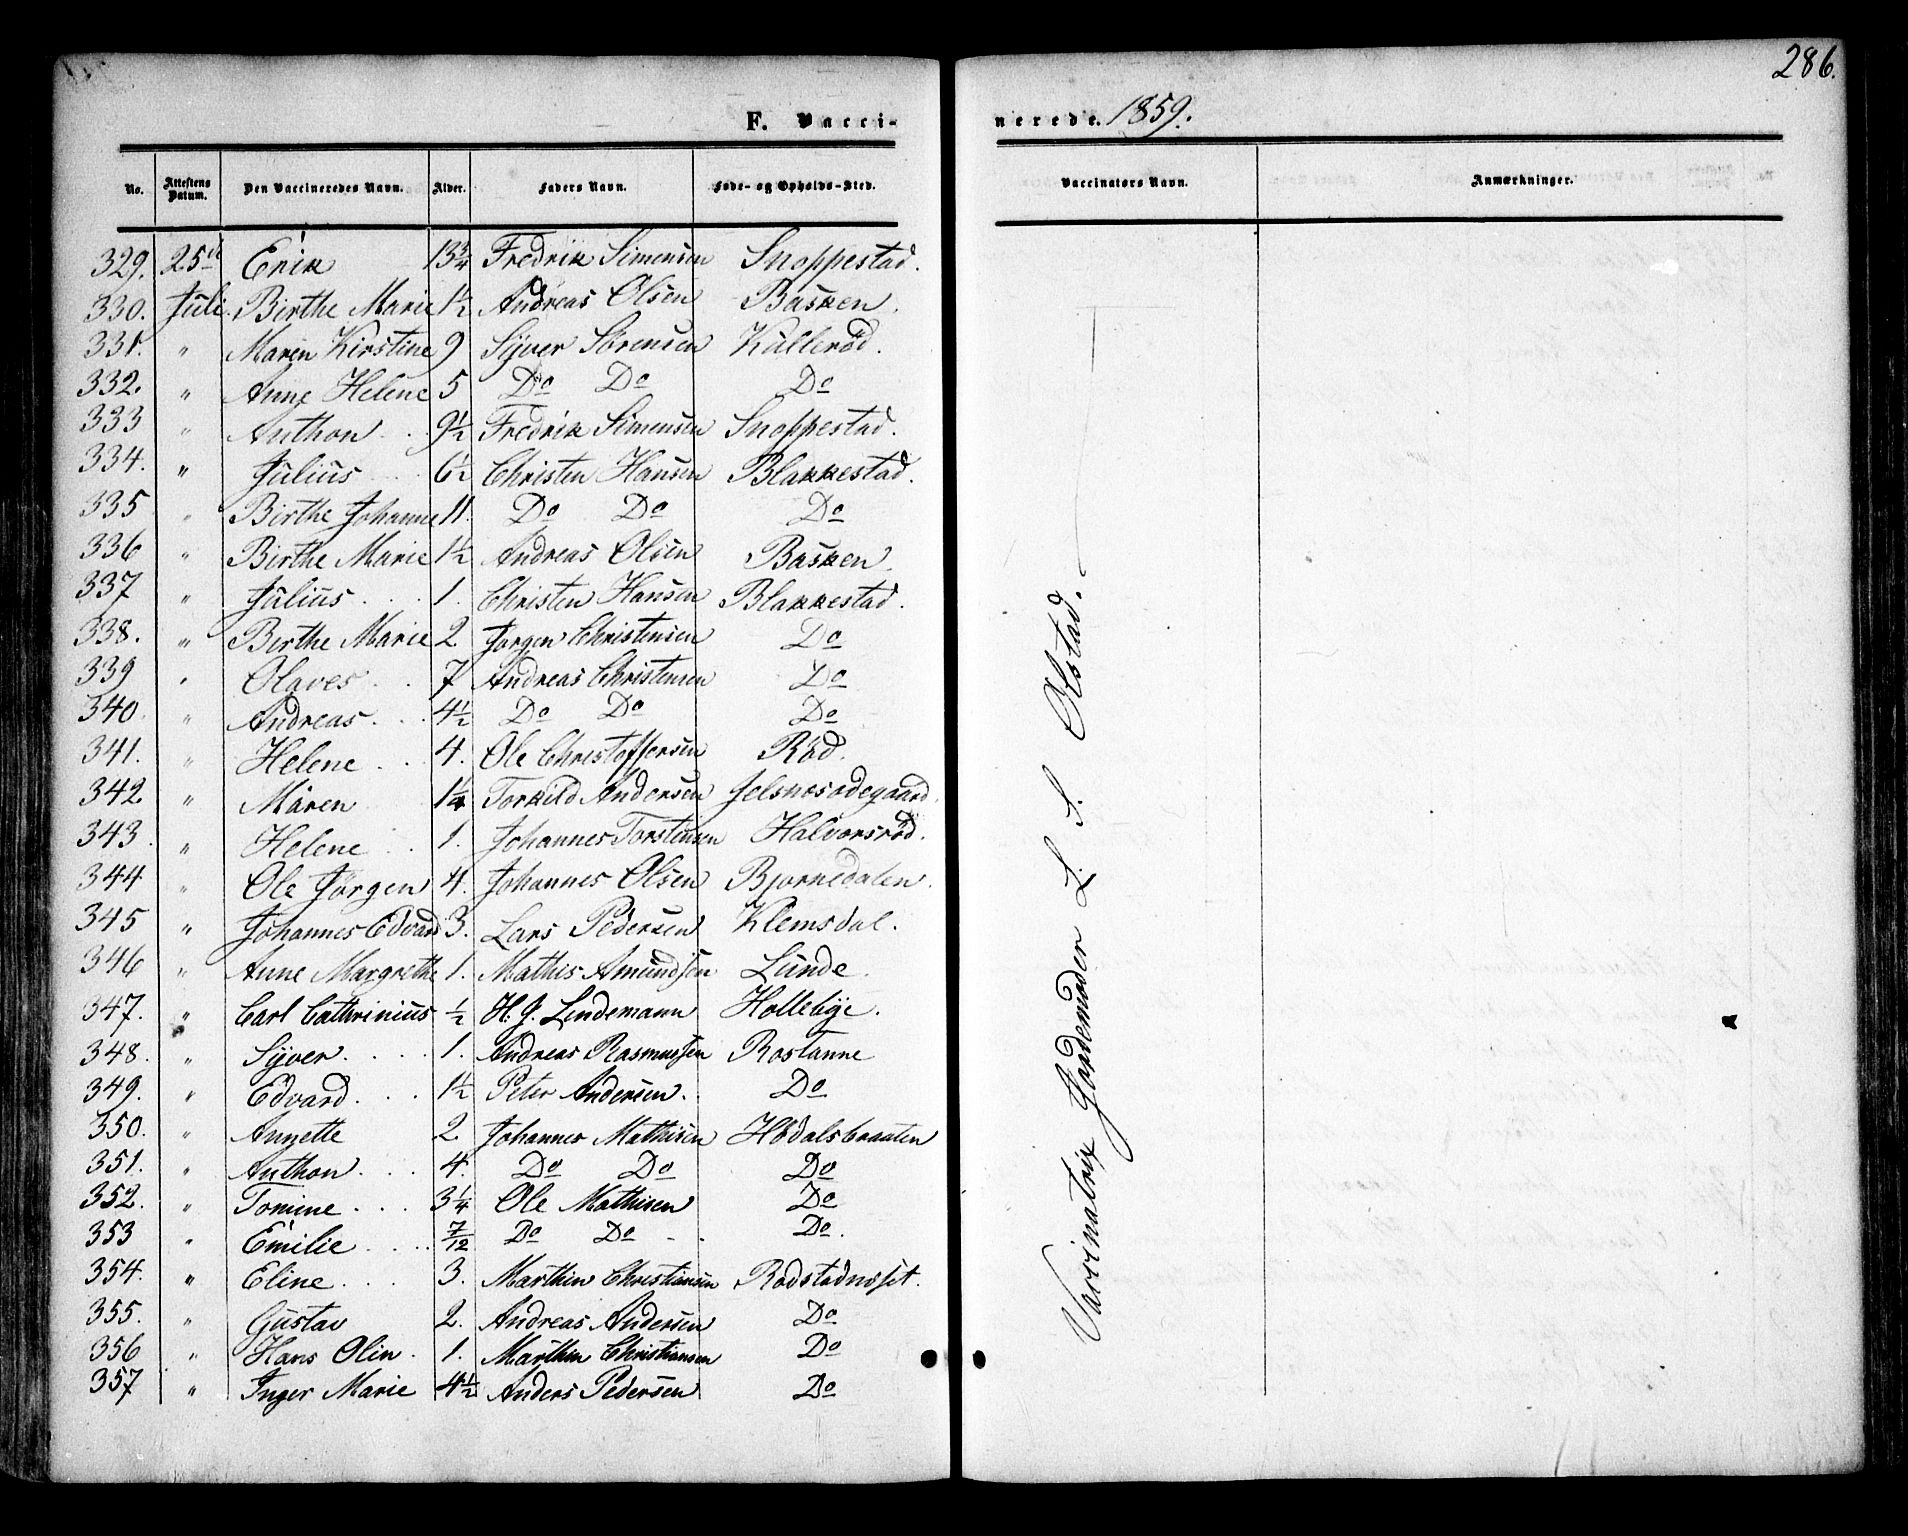 286.
F. Vacci-
nerede. 1859.
No. Attestens Datum. Den Vaccineredes Navn. Alder. Faders Navn. Føde- og Opholds-Sted. Vaccinatørs Navn. Anmærkninger.
329. 25de Erik 13 3/4 Fredrik Simensen Snoppestad.
330. Juli. Birthe Marie 1 1/2 Andreas Olsen Basken.
331. " Maren Kirstine 9 Syver Sørensen Kullerød.
332. " Anne Helene 5 Do Do Do
333 " Anthon 9 1/2 Fredrik Simensen Snoppestad.
334. " Julius 6 1/2 Christen Hansen Blakkestad.
335 " Birthe Johanne 11. Do Do Do
336 " Birthe Marie 1 1/2 Andreas Olsen Basken.
337 " Julius 1. Christen Hansen Blakkestad.
338. " Birthe Marie 2. Jørgen Christensen Do
339 " Olaves 7 Andreas Christensen Do
340. " Andreas. 4 1/2 Do Do Do
341. " Helene 4. Ole Christoffersen Rød.
342. " Maren 1 1/4 Torkild Andersen Jelsnesødegaard.
343. " Helene 1. Johannes Torstensen Halvorsrød.
344 " Ole Jørgen 4. Johannes Olsen Bjørnedalen.
345 " Johannes Edvard 3. Lars Pedersen Klemsdal.
346 " Anne Margrethe 1. Mathis Amundsen Lunde.
347. " Carl Cathrinius 1/2 H. J. Lindemann Hollebye.
348. " Syver. 1. Andreas Rasmussen Rostanne
349. " Edvard. 1 1/2 Peter Andersen. Do
350. " Annette 2. Johannes Mathisen Hødalsbraaten
351. " Anthon. 4. Do Do Do
352. " Tomine. 3 1/4 Ole Mathisen Do
353 " Emilie 7/12 Do Do Do.
354. " Eline. 3. Marthin Christiansen Rødstadneset.
355. " Gustav 2. Andreas Andersen Do
356 " Hans Olin. 1. Marthin Christiansen Do
357 " Inger Marie 4 1/2 Anders Pedersen Do
Vaccinatrix Jordemoder L. S. Olstad.